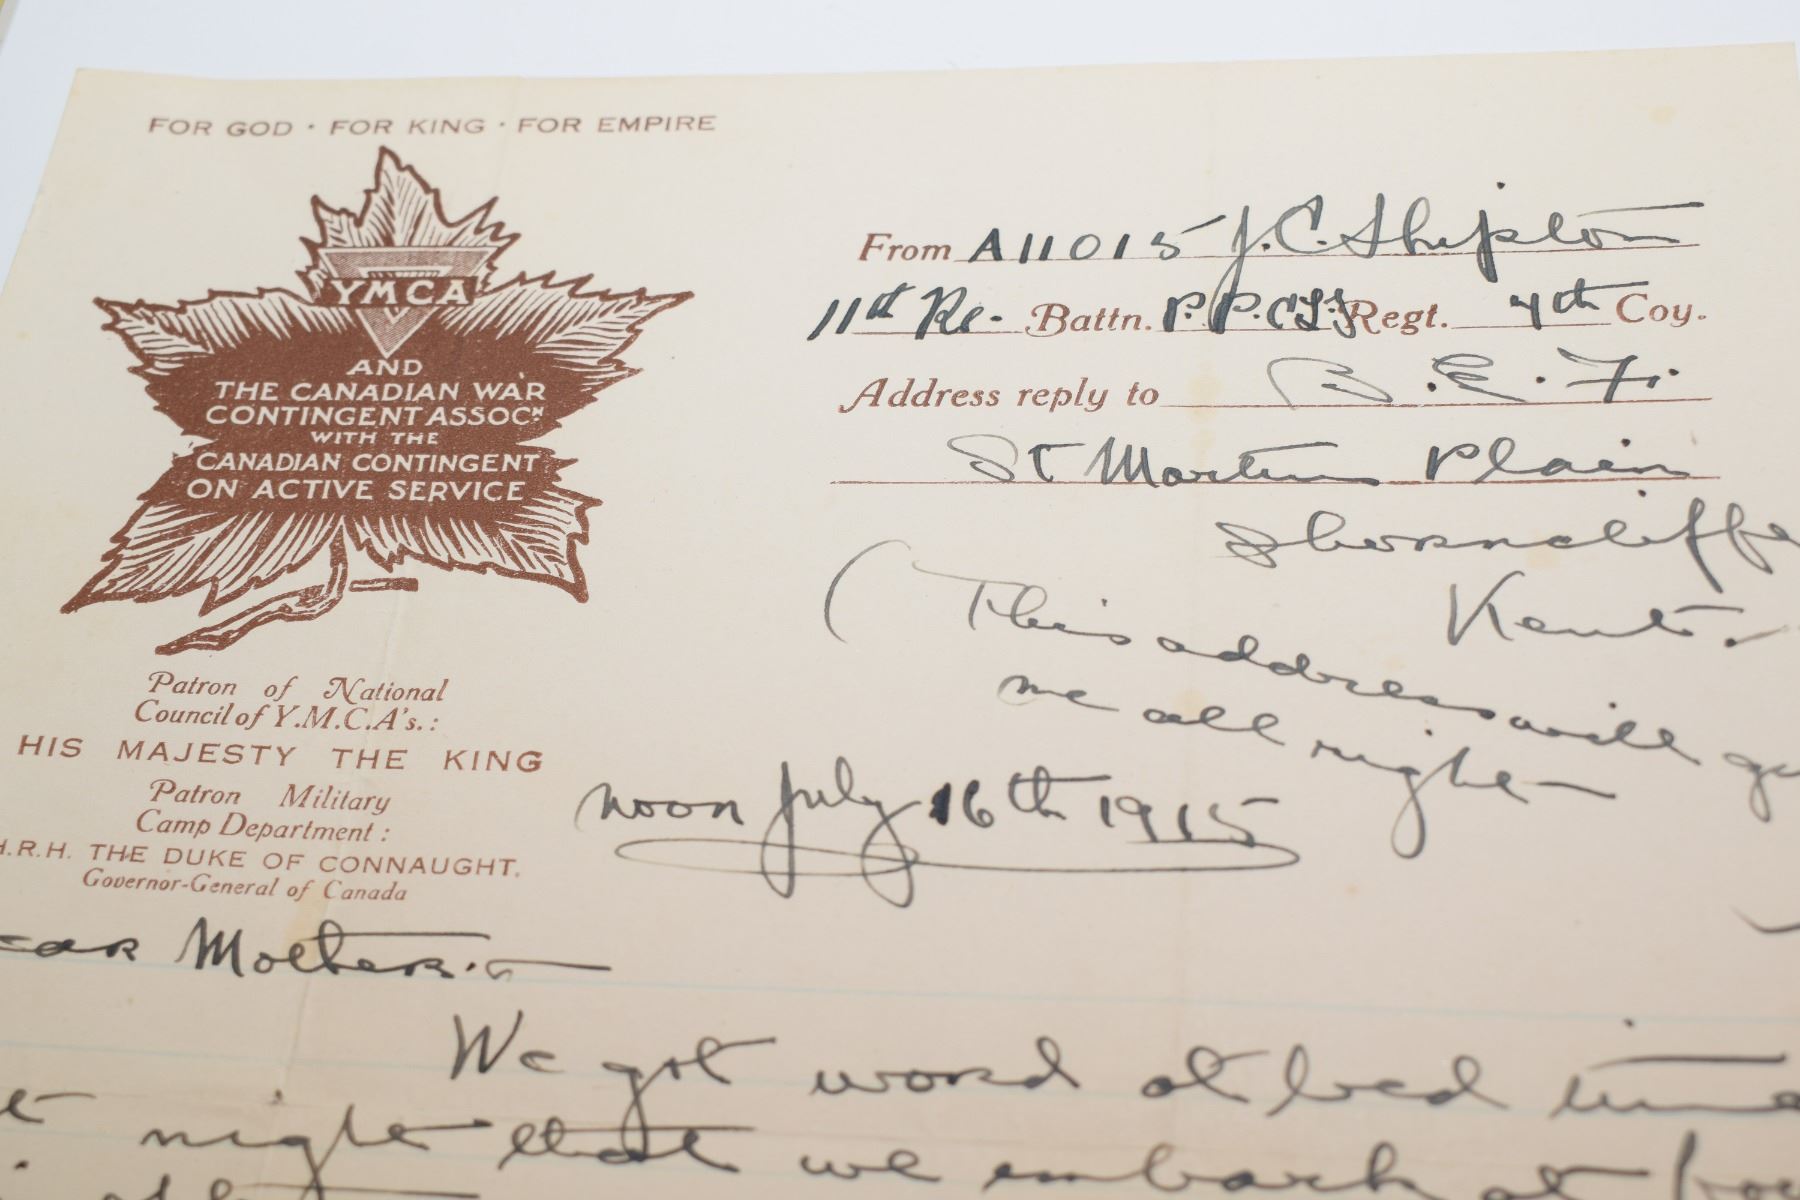 FOR GOD · FOR KING · FOR EMPIRE
YMCA
AND
THE CANADIAN WAR
CONTINGENT ASSOCN
WITH THE
CANADIAN CONTINGENT
ON ACTIVE SERVICE
Patron of National
Council of Y.M.C.A's.:
HIS MAJESTY THE KING
Patron Military
Camp Department:
H.R.H. THE DUKE OF CONNAUGHT.
Governor-General of Canada
From A11015 J.C. Shipton
11th Re- Battn. P.P.C.L.I. Regt. 4th Coy.
Address reply to B.E.F.
St Martins Plain
Shorncliffe
Kent.
(This address will
me all right
noon July 16th 1915
Mother:-
We got word at bed time
night that we embark at